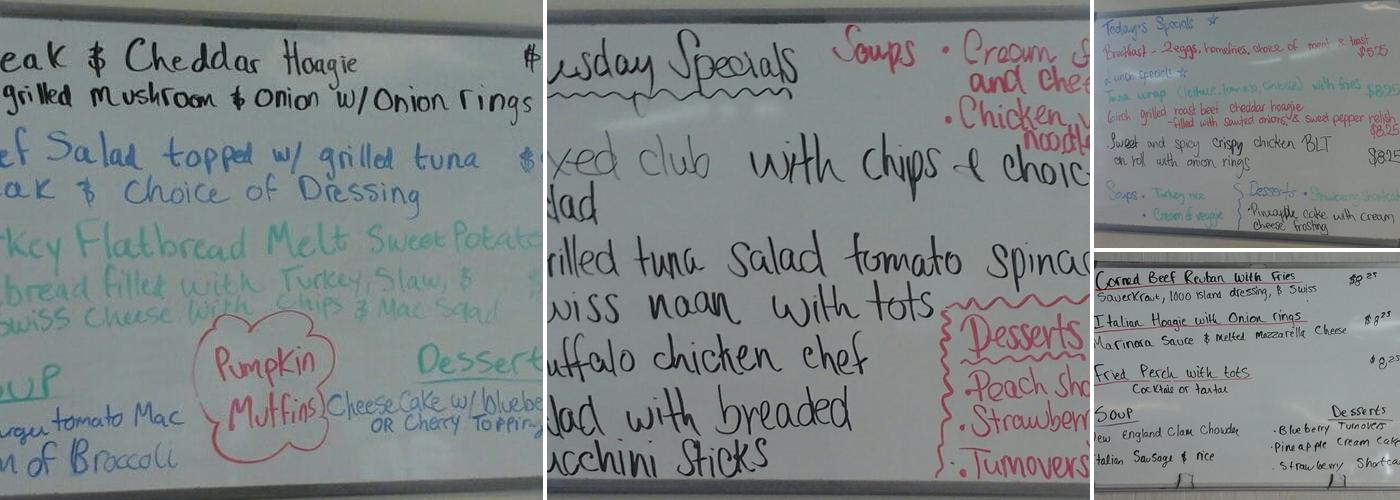 eak & Cheddar Hoagie $
grilled Mushroom & Onion w/Onion rings
ef Salad topped w/ grilled tuna $
ak & Choice of Dressing
key Flatbread Melt Sweet Potato
bread filled with Turkey, Slaw, &
Swiss Cheese with Chips & Mac Salad
OUP
Pumpkin
Muffins
Dessert
urger tomato Mac
m of Broccoli
Cheese Cake w/ bluebe
OR Cherry Topping
esday Specials
Soups • Cream of
and chee
• Chicken
noodle
xed club with chips & choic
lad
rilled tuna salad tomato spinac
wiss naan with tots
uffalo chicken chef
lad with breaded
ucchini sticks
Desserts
• Peach Sho
• Strawberr
• Turnovers
Today's Specials
Breakfast - 2 eggs, homefries, choice of meat & toast
$5.25
Lunch specials
Tuna wrap (lettuce, tomato, cheese) with fries $8.25
6 inch grilled roast beef cheddar hoagie
-filled with sauted onions & sweet pepper relish
$8.25
Sweet and spicy crispy chicken BLT
on roll with onion rings $8.25
Soups • Turkey rice
• Cream of veggie
Desserts • Strawberry shortca
• Pineapple cake with cream
cheese frosting
Corned Beef Reuban with Fries $8 25
Sauerkraut, 1000 Island dressing, & Swiss
Italian Hoagie with Onion rings $8 25
Marinara Sauce & melted Mozzarella Cheese
$8 25
Fried Perch with tots
Cocktail or tartar
Soup
ew England Clam Chowder
talian Sausage & rice
Desserts
• Blueberry Turnovers
• Pineapple Cream Cake
• Strawberry Shortca